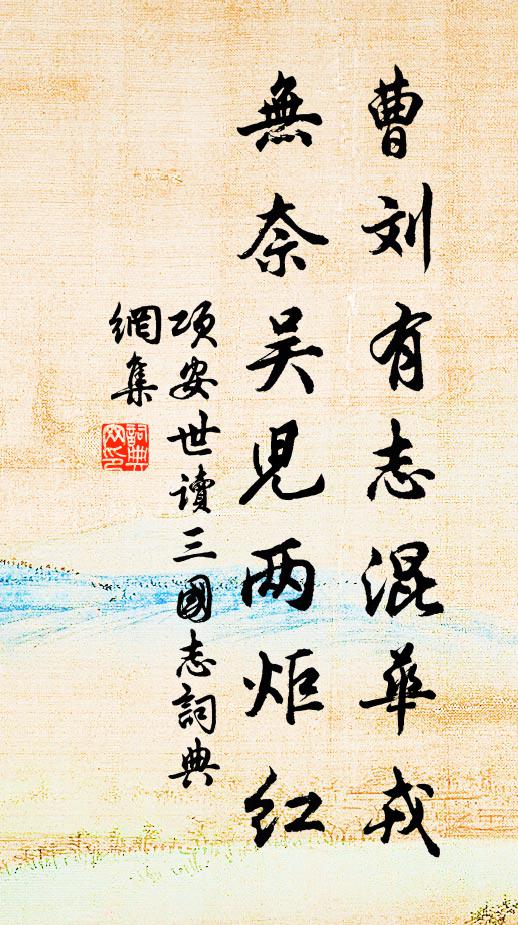 曹刘有志混華戎
無奈吴児两炬红
项安世读三國志詞典
網集
詞典